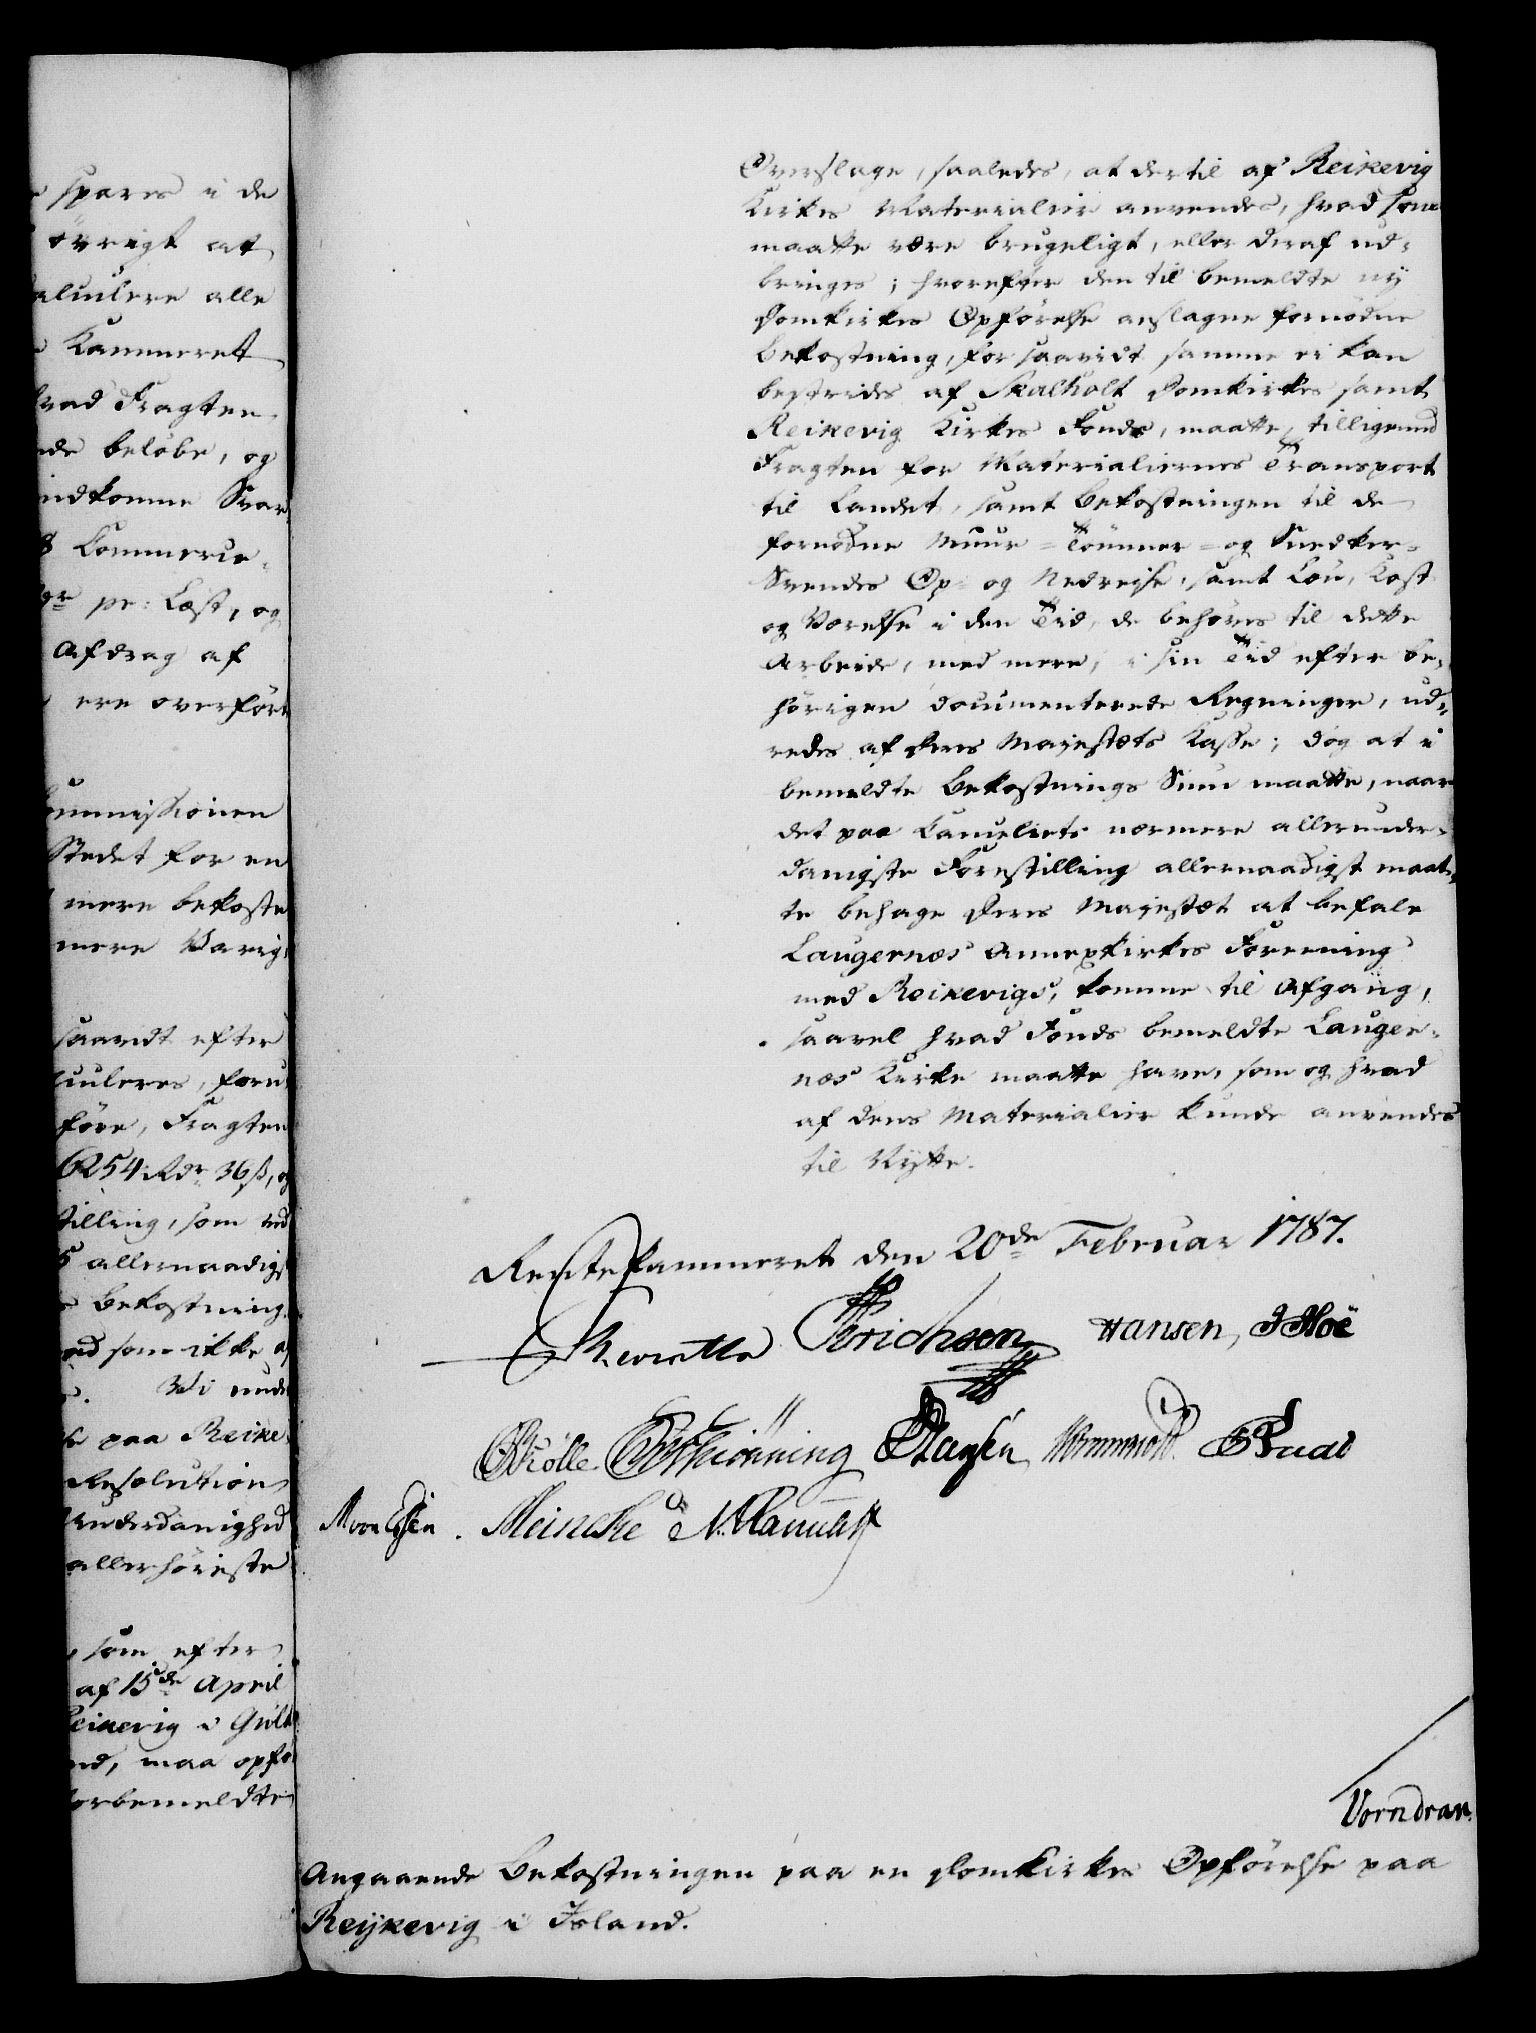 spares i de
övrigt at
alculere alle
Kammeret
hvad Fragten
beløbe, og
indkomne Svar
Commercie-
pr: Læst, og
Afdrag af
ere overført
Commissionen
Stedet for en
mere bekoste
mere Varig-
saavidt efter
Fragten
6254 Rdr 36 ß, og
tilling, som ved
allernaadigst
Bekostning
som ikke af
Wi
paa Reike-
Resolution
Underdanighed
allerhöieste
som efter
af 15de April
Reikevig i Guld-
maa opfø-
forbemeldte
Overslage, saaledes, at dertil af Reikevig
Kirkes Materialier anvendes, hvad som
maatte være brugeligt, eller deraf ud-
bringes; hvorefter den til bemeldte nÿ
Domkirkes Opförelse anslagne fornödne
Bekostning, for saavidt samme ei kan
bestrides af Skalholt Domkirkes samt
Reikevig Kirkes Fonds, maatte, tilligemed
Fragten for Materialiernes Transport
til Landet, samt Bekostningen til de
fornödne Muur- Tömmer- og Snedker-
Svendes Op- og Nedreise, samt Løn, Kost
og Værelse i den Tid, de behöves til dette
Arbeide, med mere, i sin Tid efter be-
hörigen documenterede Regninger, ud-
redes af Deres Majestæts Kasse; dog at i
bemeldte Bekostnings Sum maatte, naar
det paa Cancelliets nærmere allerunder-
danigste Forestilling allernaadigst maat-
te behage Deres Majestæt at befale
Laugernæs Annexkirkes Foreening
med Reikevigs, komme til Afgang,
saavel hvad Fonds bemeldte Lauger-
næs Kirke maatte have, som og hvad
af dens Materialier kunde anvendes
til Nytte.
Rentekammeret den 20de Februar 1787.
Erichsen Hansen,
Schiönning Hansen
Meincke
Vorndran.
Angaaende Bekostningen paa en Domkirkes Opförelse paa
Reijkevig i Island.